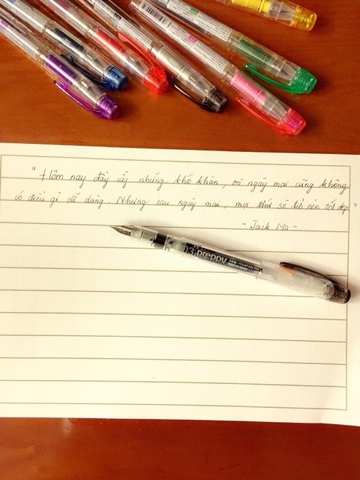 "Hôm nay đầy rẫy những khó khăn, và ngày mai cũng không
có điều gì dễ dàng. Nhưng sau ngày mai, mọi thứ sẽ trở nên tốt đẹp"
- Jack Ma -
03 preppy